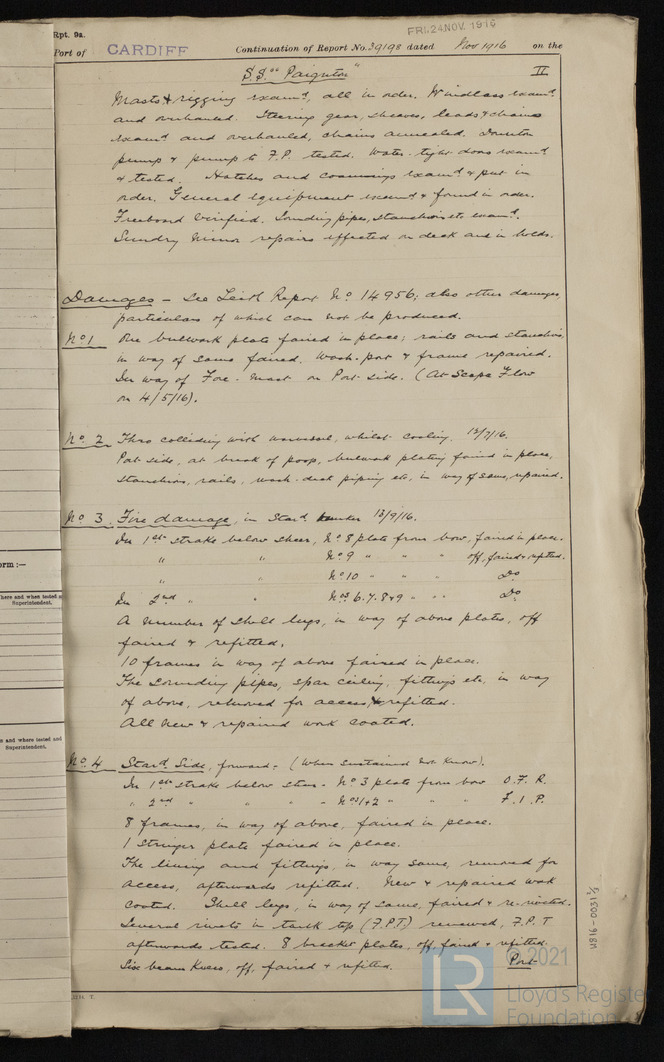 Rpt. 9a.
FRI. 24 NOV. 1916
Port of CARDIFF Continuation of Report No. 29198 dated Nov 1916 on the
S.S. "Paignton" II
Masts & rigging examd, all in order. Windlass examd
and overhauled. Steering gear, sheaves, leads & chains
examd and overhauled, chains annealed. Downton
pump & pump to F.P. tested. Water-tight doors examd
& tested. Hatches and coamings examd & put in
order. General equipment examd & found in order.
Freeboard verified. Sounding pipes, stanchions etc examd.
Sundry minor repairs effected on deck and in holds.
Damages – See Leith Report No 14956; also other damages,
particulars of which can not be produced.
No 1 One bulwark plate faired in place; rails and stanchions,
in way of same faired. Wash-port & frame repaired.
In way of Fore-mast on Port side. (At Scapa Flow
on 4/5/16).
No 2 Thro colliding with warvessel, whilst coaling. 12/7/16.
Port side, at break of poop, bulwark plating faired in place,
stanchions, rails, wash-deck piping etc, in way of same, repaired.
No 3 Fire damage, in Stard bunker 13/9/16.
In 1st strake below sheer, No 8 plate from bow, faired in place.
" " No 9 " " " off, faired & refitted.
" " No 10 " " " Do
In 2nd " " Nos 6.7.8 & 9 " " Do
A number of shell lugs, in way of above plates, off
faired & refitted.
10 frames in way of above faired in place.
The sounding pipes, spar ceiling, fittings etc. in way
of above, removed for access, & refitted.
All new & repaired work coated.
No 4 Stard Side, forward – (When sustained not know).
In 1st strake below sheer – No 3 plate from bow O.F.R.
" 2nd " " " – Nos 1 & 2 " " " F.I.P.
8 frames, in way of above, faired in place.
1 stringer plate faired in place.
The lining and fittings, in way same, removed for
access, afterwards refitted. New & repaired work
coated. Shell lugs, in way of same, faired & re-riveted.
Several rivets in tank top (F.P.T) renewed, F.P.T
afterwards tested. 8 bracket plates, off, faired & refitted.
Six beam knees, off, faired & refitted. Port
orm :—
here and when tested
Superintendent.
s and where tested and
Superintendent.
W816-0031 1/2
© 2021
LR
Lloyd's Register
Foundation